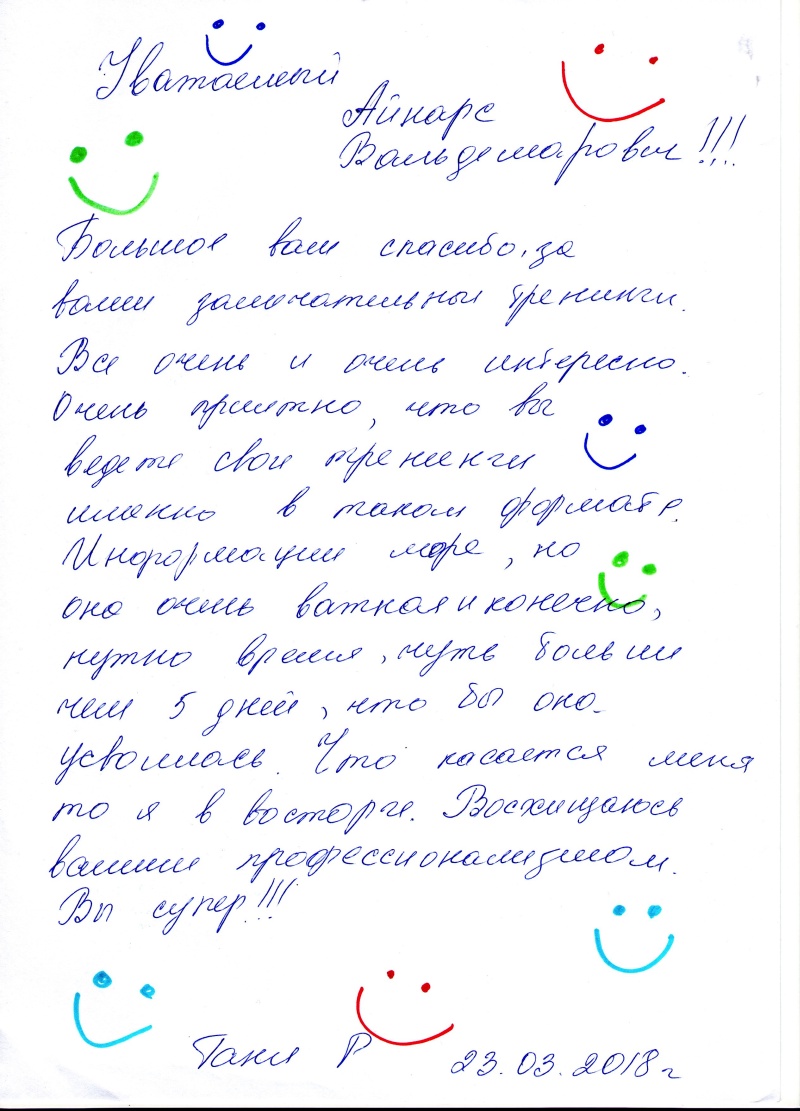 Уважаемый
Айнарс
Вальдемарович!!!
Большое вам спасибо, за
ваши замечательные тренинги.
Все очень и очень интересно.
Очень приятно, что вы
ведете свои тренинги
именно в таком формате.
Информации море, но
она очень важная и конечно,
нужно время, чуть больши
чем 5 дней, что бы она
усвоилась. Что касается меня
то я в восторге. Восхищаюсь
вашим профессионализмом.
Вы супер!!!
Таня Р 23.03.2018 г